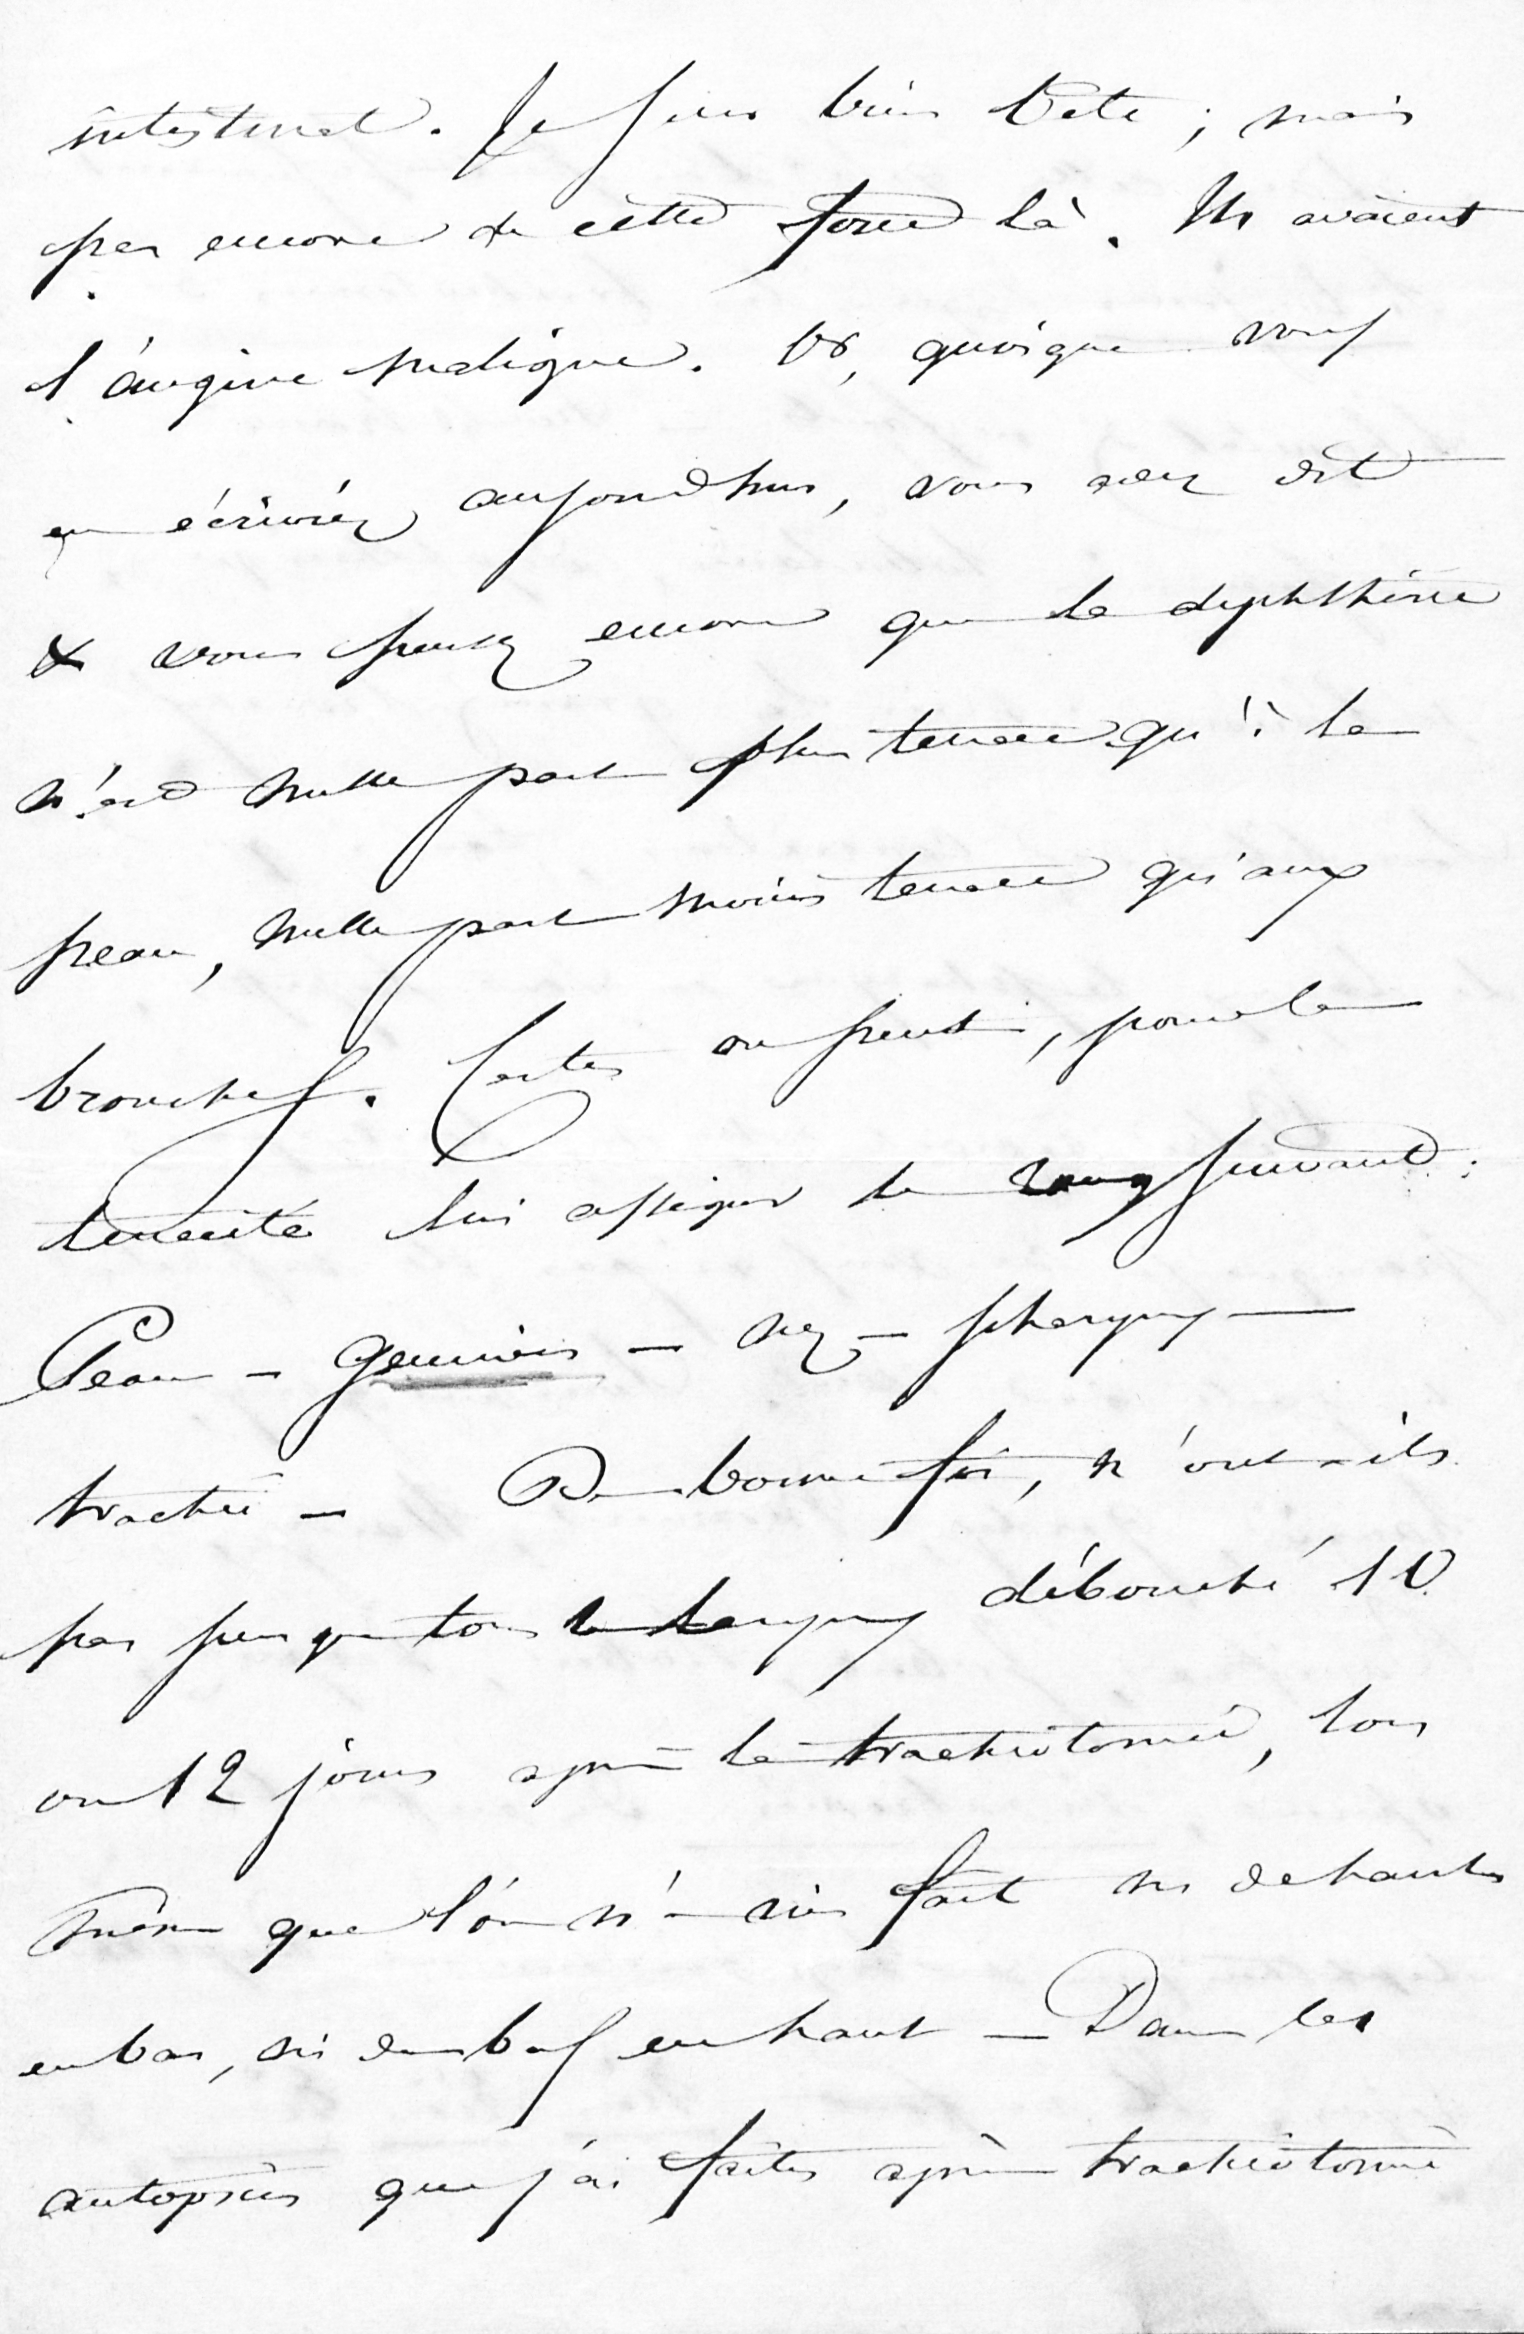 intestinal. Je suis bien bête ; mais
pas encore de cette force là. Ils avaient
l'angine maligne. Or, quoique vous
en écriviez aujourd'hui, vous avez dit
& vous pensez encore que la diphthérie
n'est nulle part plus tenace qu'à la
peau, nulle part moins tenace qu'aux
bronches. Certes on peut, pour la
tenacité lui assigner le rang suivant :
Peau - Gencives - nez - pharynx -
trachée - De bonne foi, n'ont-ils
pas presque tous le larynx débouché 10
ou 12 jours après la trachéotomie, lors
même que l'on n'a rien fait ni de haut
en bas, ni de bas en haut - Dans les
autopsies que j'ai faites après trachéotomie